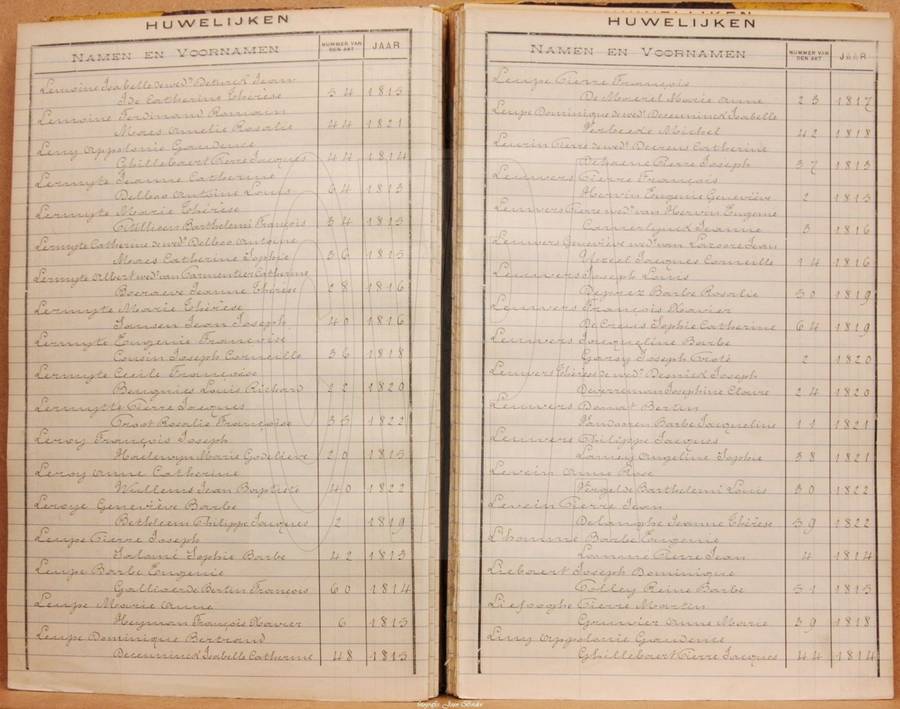 HUWELIJKEN
NAMEN EN VOORNAMEN NUMMER VAN DEN AKT JAAR
Lemoine Isabelle de wed. Deturck Jean
Ide Catherine Thérèse 54 1815
Lemoine Ferdinand Romain
Maes Amelie Rosalie 44 1821
Leny Appolonie Gaudence
Ghillebaert Pierre Jacques 44 1814
Lermyte Jeanne Catherine
Delboo Antoine Louis 64 1813
Lermyte Marie Thérèse
Barthelemi François 34 1815
Lermyte Catherine de wed. Delboo Antoine
Maes Catherine Sophie 36 1815
Lermyte Albert wed. van Parmentier Catherine
Boeraeve Jeanne Thérèse 28 1816
Lermyte Marie Thérèse
Jansen Jean Joseph 40 1816
Lermyte Eugenie Françoise
Cousin Joseph Corneille 36 1818
Lermyte Cecile Françoise
Beugnies Louis Richard 22 1820
Lermytte Pierre Jacques
Croos Rosalie Françoise 35 1822
Leroy François Joseph
Haelewyn Marie Godelieve 20 1815
Leroy Anne Catherine
Willems Jean Baptiste 40 1822
Leroye Geneviève Barbe
Bethleem Philippe Jacques 2 1819
Leupe Pierre Joseph
Salomé Sophie Barbe 42 1813
Leupe Barbe Eugenie
Galliaerde Bertin François 60 1814
Leupe Marie Anne
Heyman François Xavier 6 1815
Leupe Dominique Bertrand
Deceuninck Isabelle Catherine 48 1815
HUWELIJKEN
NAMEN EN VOORNAMEN NUMMER VAN DEN AKT JAAR
Leupe Pierre François
De Maerel Marie Anne 23 1817
Leupe Dominique de wed. Deceuninck Isabelle
Verbeeke Michel 42 1818
Leurin Pierre de wed. Decreus Catherine
Dehaene Pierre Joseph 37 1813
Leuwers Pierre François
Hervin Eugenie Geneviève 2 1815
Leuwers Pierre wed. van Hervin Eugenie
Camerlynck Jeanne 3 1816
Leuwers Geneviève wed. van Lazoore Jean
Yfezel Jacques Corneille 14 1816
Leuwers Joseph Louis
Deprez Barbe Rosalie 30 1819
Leuwers François Xavier
De Creus Sophie Catherine 64 1819
Leuwers Jacqueline Barbe
Garsy Joseph 2 1820
Leuwers Thérèse de wed. Desnick Joseph
Deverreman Josephine Claire 24 1820
Leuwers Donat Bertin
Vandooren Barbe Jacqueline 11 1821
Leuwers Philippe Jacques
Lamey Angeline Sophie 38 1821
Levein Anne Rose
Vergelde Barthelemi Louis 30 1822
Levein Pierre Jean
Delanghe Jeanne Thérèse 39 1822
Lhomme Barbe Eugenie
Lamme Pierre Jean 4 1814
Liebaert Joseph Dominique
Colley Reine Barbe 51 1813
Liefooghe Pierre Martin
Grunier Anne Marie 39 1818
Liny Appolonie Gaudence
Ghillebaert Pierre Jacques 44 1814